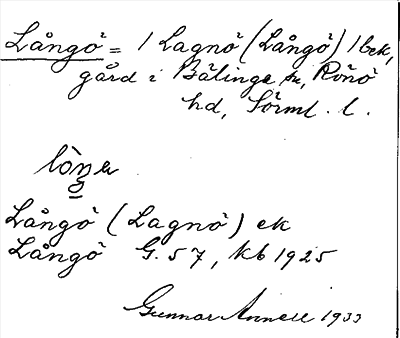 Långö = / Lagnö (Långö) / bek,
gård i Bälinge sn, Rönö
hd, Sörml. l.
Långö (Lagnö) ek
Långö G. 57, Kb 1925
Gunnar Annell 1933